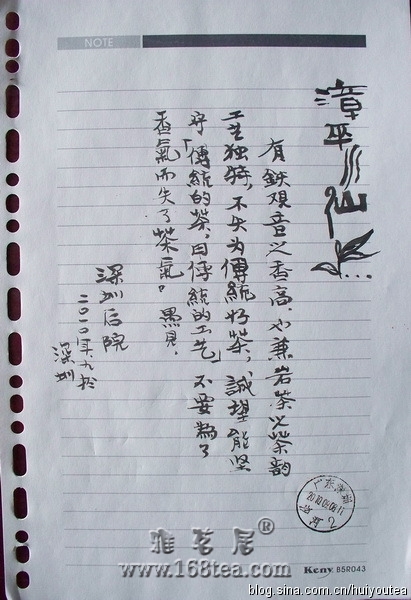 NOTE
漳平水仙
有鉄覌音之香高,也兼岩茶之茶韵
工艺独特,不失为傳統好茶,誠望能坚
守「傳統的茶,因傳統的工艺」不要為了
香氣而失了茶氣。愚見,
深圳后院
二〇一〇年九於
深圳
广东深圳
2
雅茗居®
www.168tea.com
Keny B5R043
blog.sina.com.cn/huiyoutea